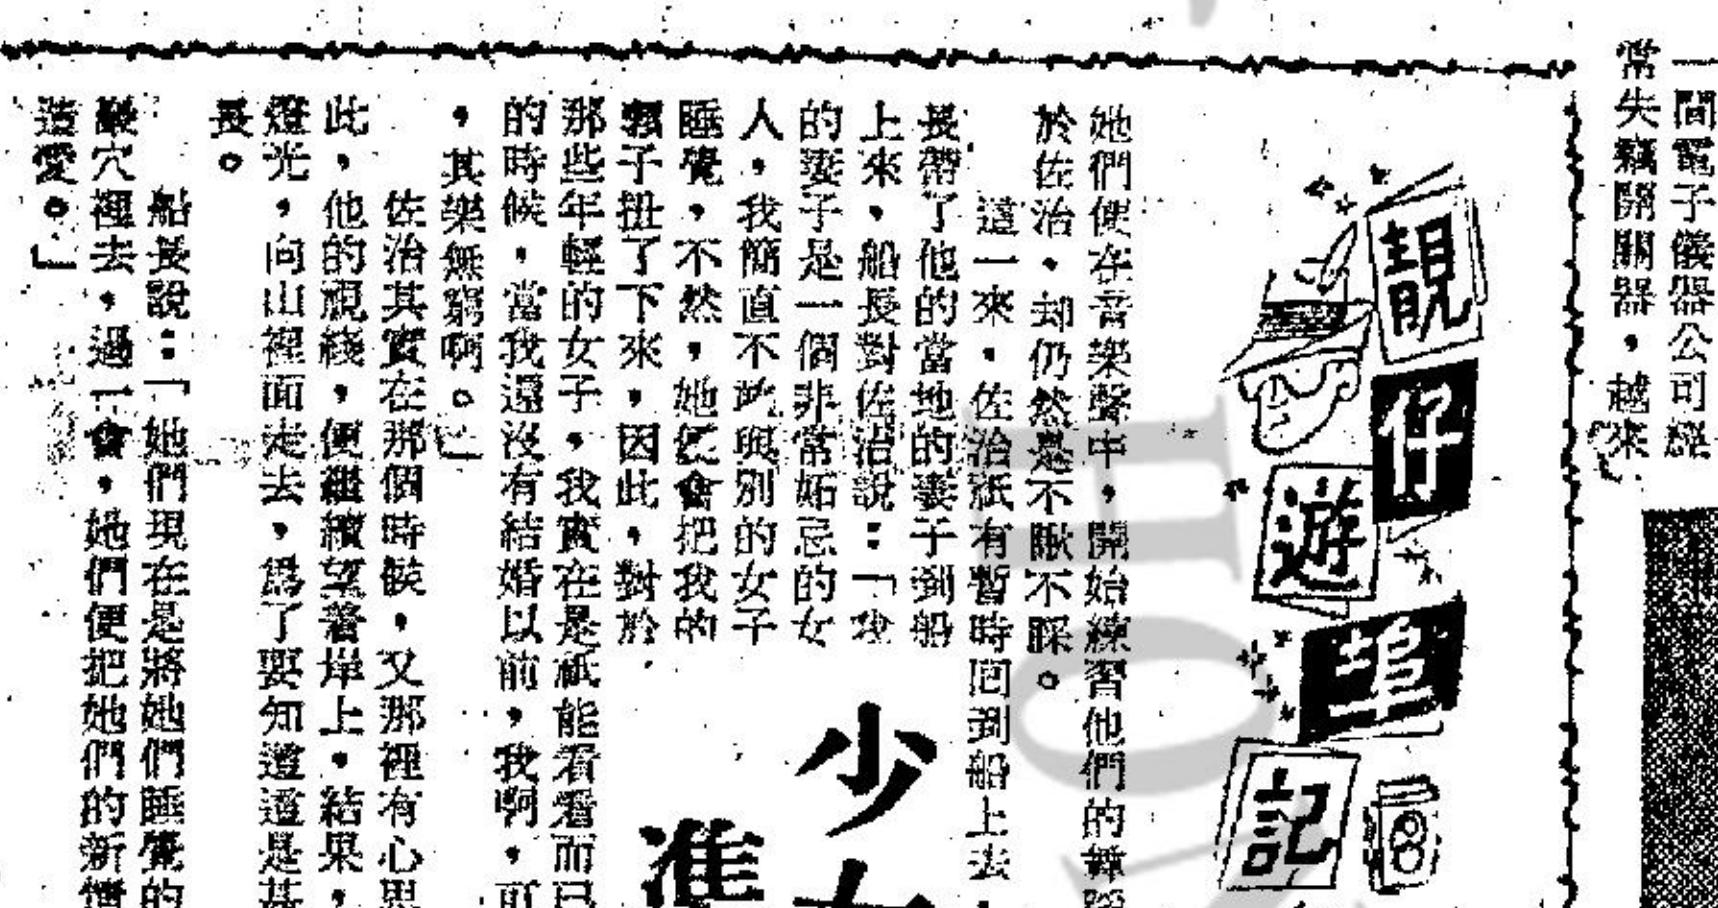 一間電子儀器公司經
常失竊開關器，越來
靚仔遊埠記
她們便在音樂聲中，開始練習他們的舞蹈
於佐治，却仍然是不瞅不睬。
這一來，佐治祇有暫時回到船上去，
長帶了他的當地的妻子到船
上來，船長對佐治說：「我
的妻子是一個非常妬忌的女
人，我簡直不能與別的女子
睡覺，不然，她便會把我的
頸子扭了下來，因此，對於
那些年輕的女子，我實在是祇能看看而已
的時候，當我還沒有結婚以前，我啊，可
，其樂無窮啊。」
佐治其實在那個時候，又那裡有心思
此，他的視綫，便繼續望著岸上，結果，
燈光，向山裡面走去，爲了要知道這是甚
長。
船長說：「她們現在是將她們睡覺的
巖穴裡去，過一會，她們便把她們的新情
造愛。」
少女
準